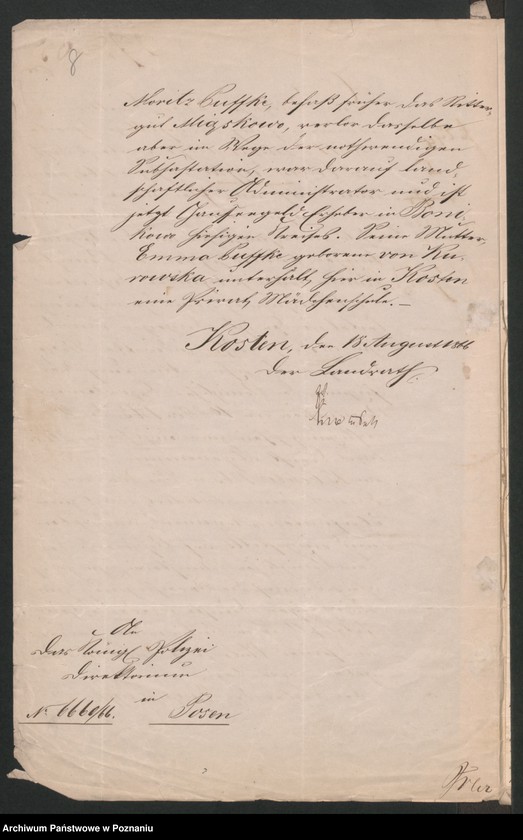 8
Moritz Luffke, besaß früher das Ritter-
gut Miąskowo, verlor dasselbe
aber im Wege der nothwendigen
Subhastation, war darauf land-
schaftlicher Administrator und ist
jetzt Chausseegeld Erheber in Boni-
kowo hiesigen Kreises. Seine Mutter,
Emma Luffke geborene von Ku-
rowska unterhält hier in Kosten
eine Privat Mädchenschule. —
Kosten, den 18 August 1866
Der Landrath
An
das Königl Polizei
Direktorium
in
Posen
№ 6660/66.
Archiwum Państwowe w Poznaniu